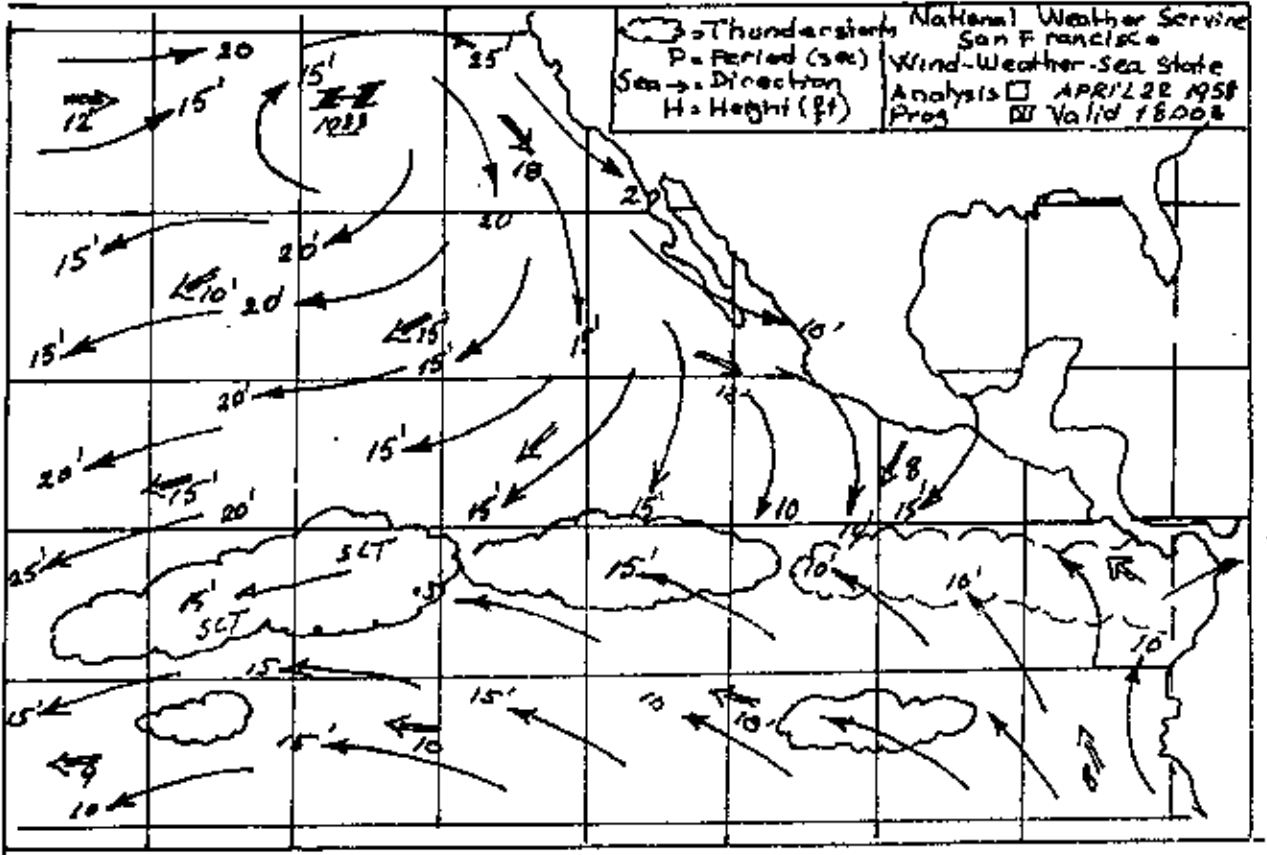 = Thunderstorm
P = Period (sec)
Sea → = Direction
H = Height (ft)
National Weather Service
San Francisco
Wind-Weather-Sea State
Analysis APRIL 22 1958
Prog Valid 1800Z
20
15'
25
12
15'
H
18
2
20
15'
20'
10'
20'
15'
15'
15'
10'
20'
15'
20'
15'
8
15'
20'
15'
15'
10
15'
25'
SLT
15'
SLT
15'
10'
10'
10
15
15'
15'
10
10
15'
10
9
10
8